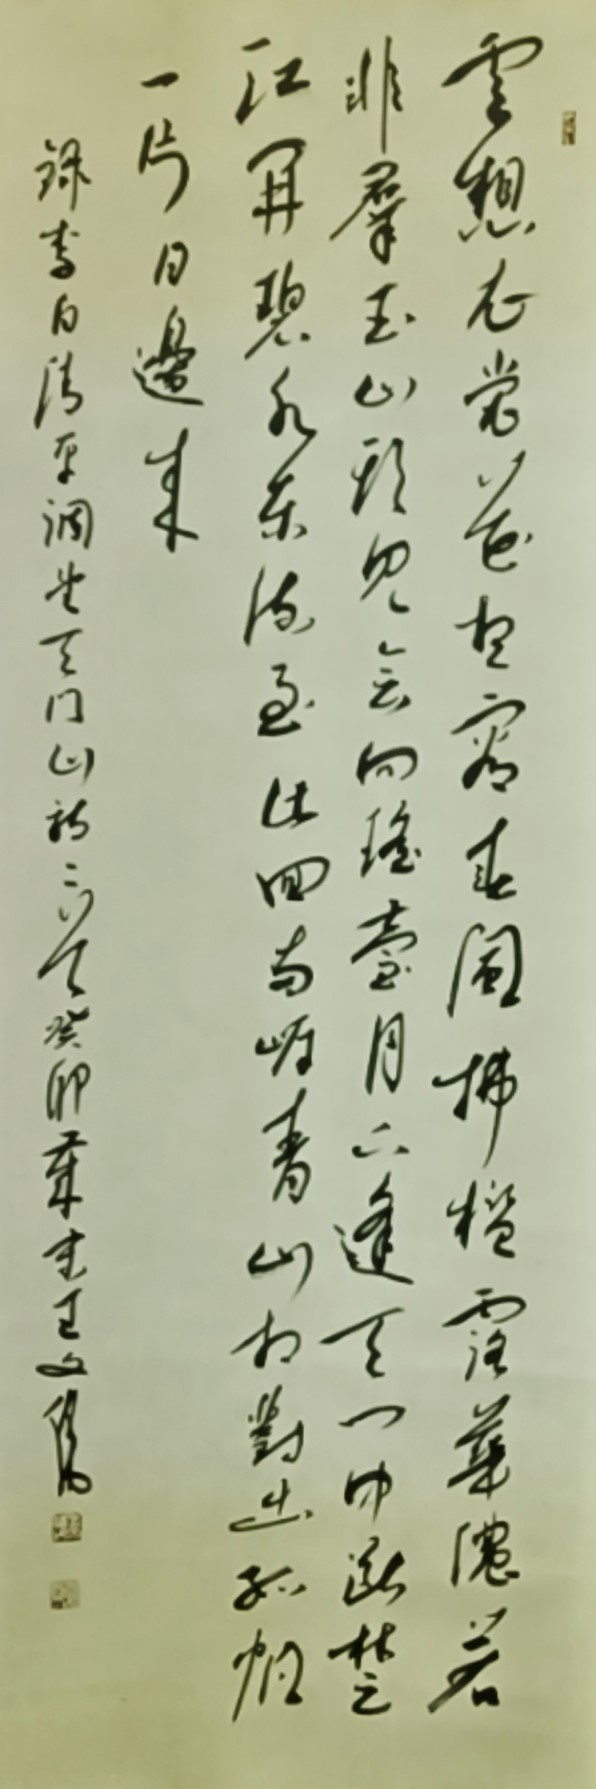 雲想衣裳花想容春風拂檻露華濃若
非羣玉山頭見會向瑤臺月下逢天門中斷楚
江開碧水東流至此回兩岸青山相對出孤帆
一片日邊來
錄李白清平調望天門山詩二首癸卯王文